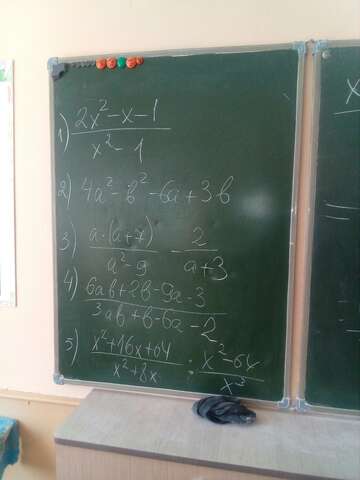 1) (2x²-x-1)/(x²-1)
2) 4a²-b²-6a+3b
3) (a·(a+7))/(a²-9) - 2/(a+3)
4) (6ab+2b-9a-3)/(3ab+b-6a-2)
5) (x²+16x+64)/(x²+8x) : (x²-64)/x²
x
=